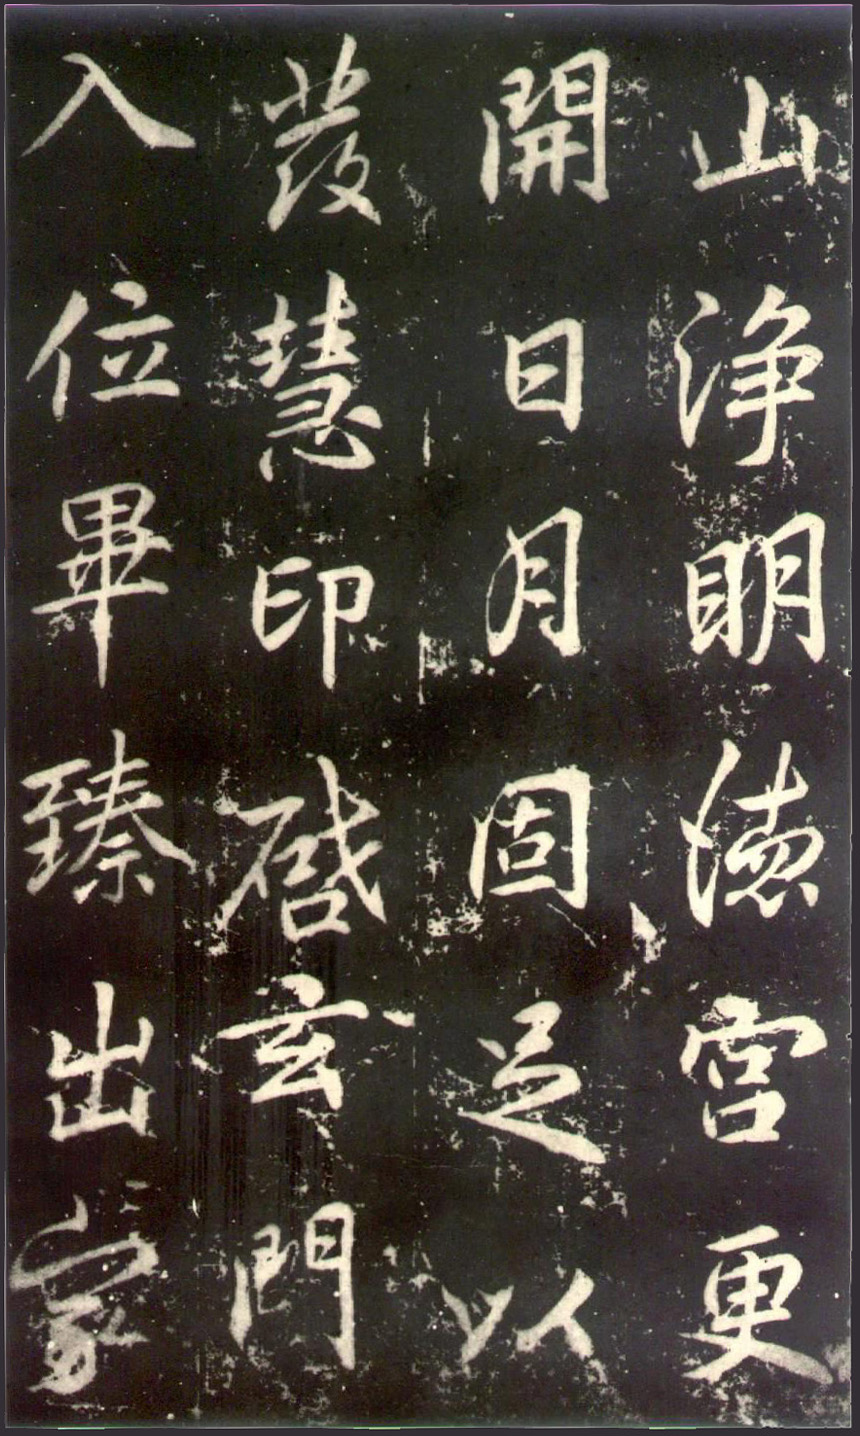 山淨明德宮更
開日月固足以
發慧印啟玄門
入位畢臻出家